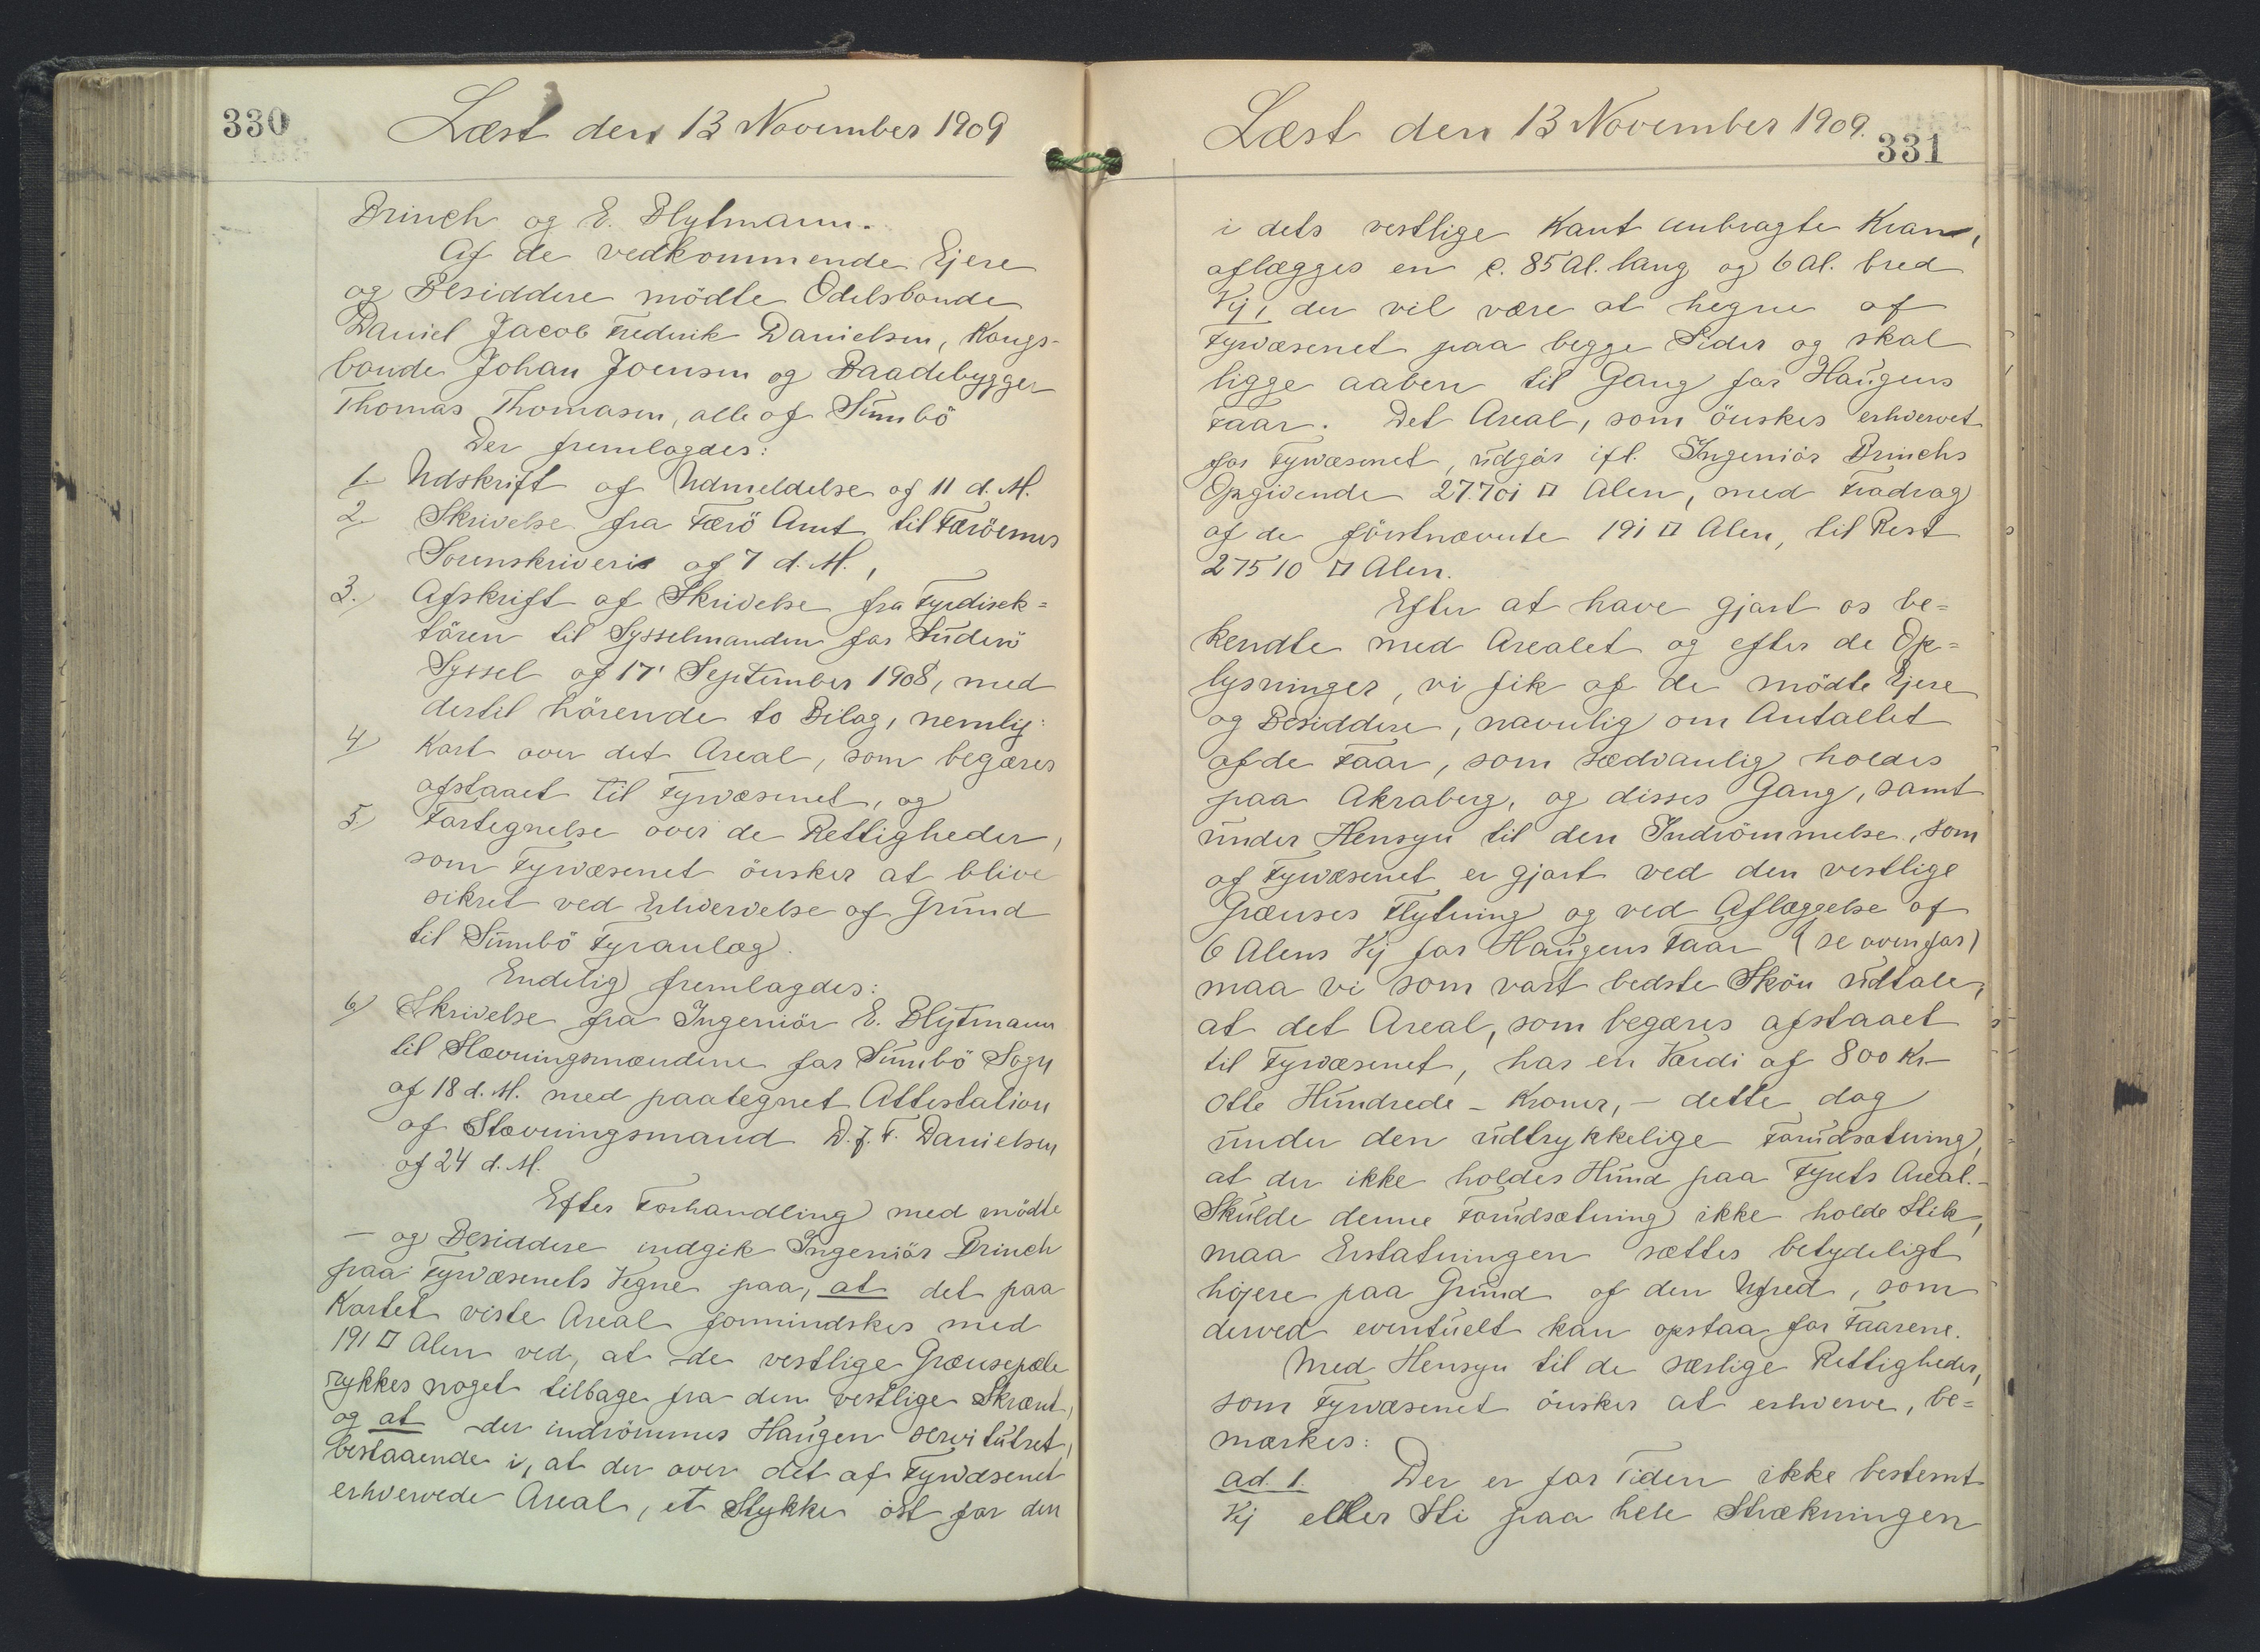 330
Læst den 13 November 1909
Brinch og E. Blytmann.
Af de vedkommende Ejere
og Besiddere mödte Odelsbonde
Daniel Jacob Frederik Danielsen, Kongs-
bonde Johan Joensen og Baadebygger
Thomas Thomasen, alle af Sumbö
Der fremlagdes:
1. Udskrift af Udmeldelse af 11 d. M.
2. Skrivelse fra Færö Amt til Færöernes
Sorenskriveri af 7 d. M.,
3. Afskrift af Skrivelse fra Fyrdirek=
tören til Sysselmanden for Suderö
Syssel af 17' September 1908, med
dertil hörende to Bilag, nemlig:
4) Kort over det Areal, som begæres
afstaaet til Fyrvæsenet, og
5) Fortegnelse over de Rettigheder,
som Fyrvæsenet önsker at blive
sikret ved Erhvervelse af Grund
til Sumbö Fyranlæg.
Endelig fremlagdes:
6) Skrivelse fra Ingeniör E. Blytmann
til Stævningsmændene for Sumbö Sogn
af 18 d. M. med paategnet Attestation
af Stævningsmand D. J. F. Danielsen
af 24 d. M.
Efter Forhandling med mödte
— og Besiddere indgik Ingeniör Brinch
paa Fyrvæsenets Vegne paa, at det paa
Kortet viste Areal formindskes med
191 □ Alen ved, at de vestlige Grænsepæle
rykkes noget tilbage fra den vestlige Skrænt,
og at der indrömmes Haugen servitutret,
bestaaende i, at der over det af Fyrvæsenet
erhvervede Areal, et Stykke öst for den
Læst den 13 November 1909.
331
i dets vestlige Kant anbragte Kran,
aflægges en c. 85 Al. lang og 6 Al. bred
Vej, der vil være at hegne af
Fyrvæsenet paa begge Sider og skal
ligge aaben til Gang for Haugens
Faar. Det Areal, som önskes erhvervet
for Fyrvæsenet, udgör ifl. Ingeniör Brinchs
Opgivende 27.701 □ Alen, med Fradrag
af de förstnævnte 191 □ Alen, til Rest
27510 □ Alen.
Efter at have gjort os be=
kendte med Arealet og efter de Op=
lysninger, vi fik af de mödte Ejere
og Besiddere, navnlig om Antallet
af de Faar, som sædvanlig holdes
paa Akraberg, og disses Gang, samt
under Hensyn til den Indrömmelse, som
af Fyrvæsenet er gjort ved den vestlige
Grænses Flytning og ved Aflæggelse af
6 Alens Vej for Haugens Faar (se ovenfor)
maa vi som vort bedste Skön udtale,
at det Areal, som begæres afstaaet
til Fyrvæsenet, har en Værdi af 800 Kr.—
Otte Hundrede – Kroner, – dette dog
under den udtrykkelige Forudsætning,
at der ikke holdes Hund paa Fyrets Areal.—
Skulde denne Forudsætning ikke holde Stik,
maa Erstatningen sættes betydeligt
höjere paa Grund af den Ufred, som
derved eventuelt kan opstaa for Faarene.
Med Hensyn til de særlige Rettigheder,
som Fyrvæsenet önsker at erhverve, be=
mærkes:
ad. 1. Der er for Tiden ikke bestemt
Vej eller Sti paa hele Strækningen